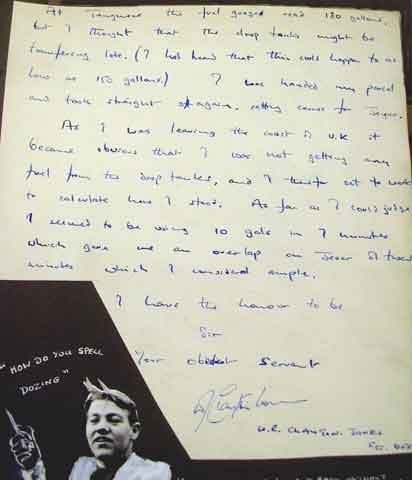 At Tangmere the fuel gauges read 180 gallons,
but I thought that the drop tanks might be
transfering late. (I had heard that this could happen to as
low as 150 gallons.) I was handed my parcel
and took straight off again, setting course for
As I was leaving the coast of U.K it
became obvious that I was not getting any
fuel from the drop tanks, and I therefor set to work
to calculate how I stood. As far as I could judge
I seemed to be using 10 gals in 7 minutes
which gave me an overlap on of three
minutes which I considered ample.
I have the honour to be
Sir
Your obedient Servant
W.R. CLAYTON-JONES
"HOW DO YOU SPELL
DOZING"